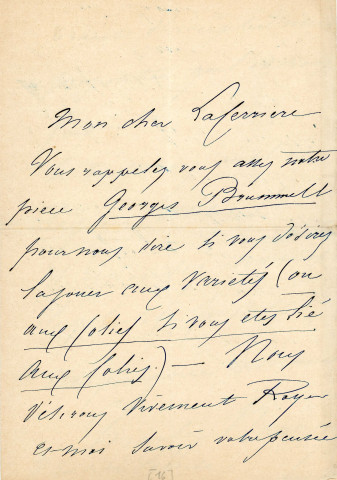 Mon cher Laferriere
Vous rappelez vous assez notre
piece Georges Brummell
pour nous dire si vous désirez
la jouer aux Variétés (ou
aux folies si vous etes lié
aux folies) — Nous
désirons vivement Royer
et moi savoir votre pensée
[16]